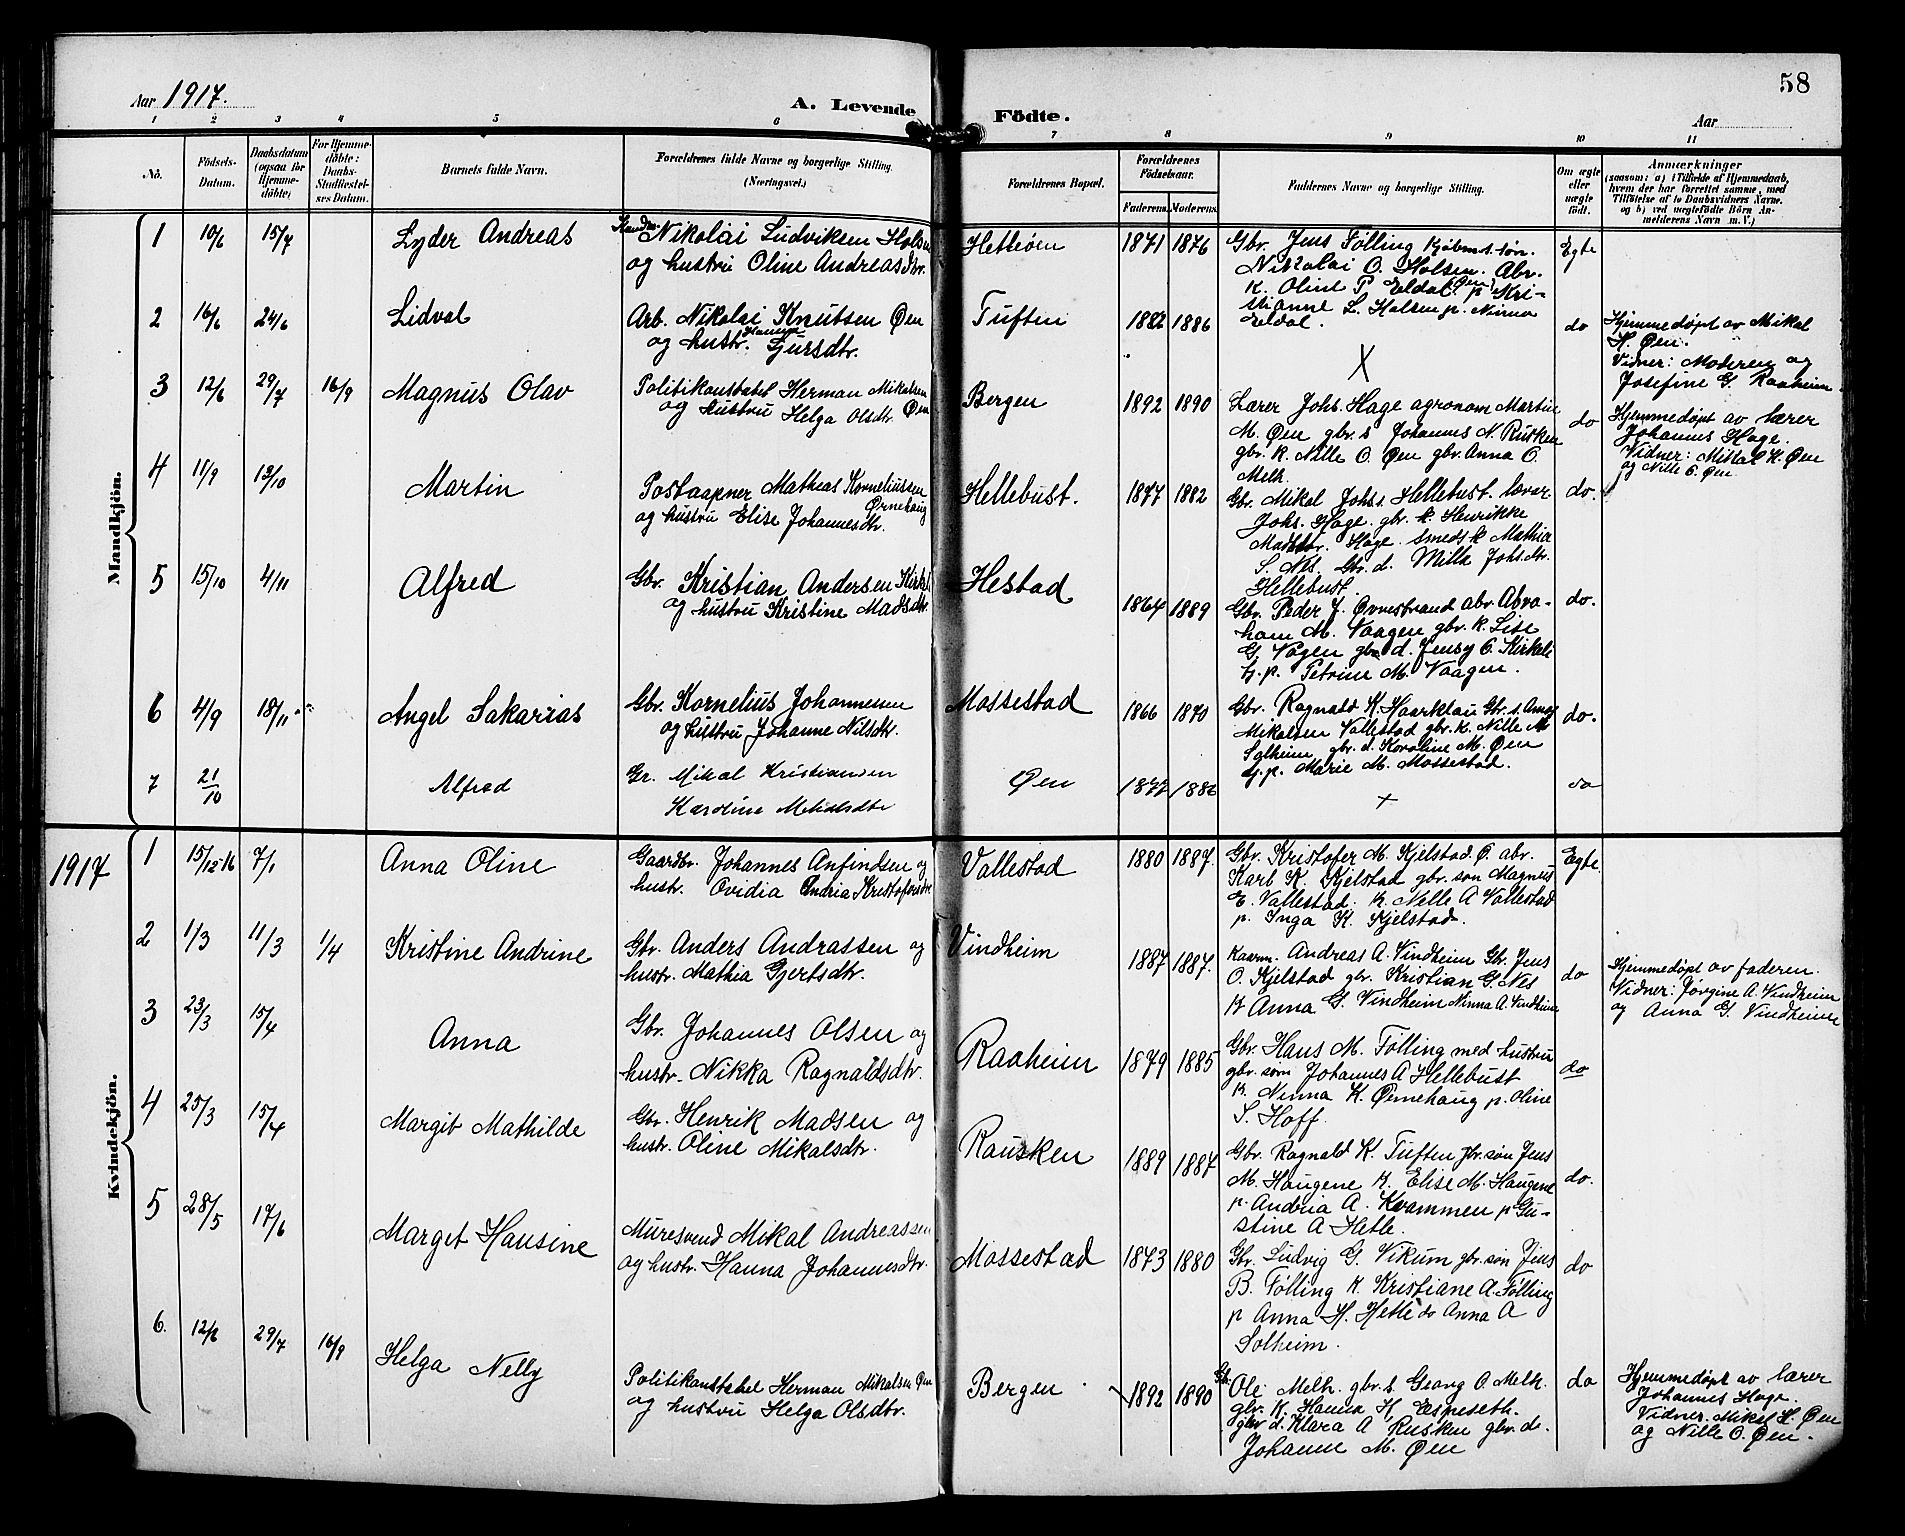 58
Aar 1917.
A. Levende Födte.
Aar
1 2 3 4 5 6 7 8 9 10 11
No.
Födsels-
Datum.
Daabsdatum
(ogsaa for
Hjemme-
döbte)
For Hjemme-
döbte:
Daabs-
Stadfæstel-
ses Datum.
Barnets fulde Navn.
Forældrenes fulde Navne og borgerlige Stilling
(Næringsvei.)
Forældrenes Bopæl.
Forældrenes
Födselsaar.
Faderens. Moderens.
Faddernes Navne og borgerlige Stilling.
Om ægte
eller
uægte
födt.
Anmærkninger
(saasom: a) i Tilfælde af Hjemmedaab,
hvem der har forrettet samme, med
Tilföielse af to Daabsvidners Navne.
og b) ved uægtefödte Börn An-
melderens Navn m. V.)
Mandkjön.
1 10/6 15/7 Lyder Andreas
Nikolai Ludviksen Holsen
og hustru Oline Andreasdtr.
Hetleøen 1871 1876
Gbr. Jens Følling Kjøbm.s søn.
Nikolai O. Holsen. Abr.
K. Oline P Eldal (Øen) p Kri-
stianne L. Holsen p. Ninna
Eldal.
Egte
2 16/6 24/6 Lidval
Arb. Nikolai Knutsen Øen
og hustr. Hanna Sjursdtr.
Tuften 1882 1886
X
do
Hjemmedøpt av Mikal
H. Øen.
Vidner: Moderen og
Josefine G. Raaheim
3 12/6 29/7 16/9 Magnus Olav
Politikonstabel Herman Mikalsen
og hustru Helga Olsdtr. Øen
Bergen 1892 1890
Lærer Johs. Hage agronom Martin
M. Øen gbr. s Johannes N. Rusken
gbr. k. Nille O. Øen gbr. Anna O.
Melh.
do
Hjemmedøpt av lærer
Johannes Hage.
Vidner: Mikal H. Øen
og Nille O. Øen
4 11/9 13/10 Martin
Postaapner Mathias Korneliussen
Ørnehaug
og hustru Elise Johannesdtr.
Hellebust. 1877 1882
Gbr. Mikal Johs. Hellebust. lærar
Johs. Hage. gbr. k. Henrikke
Madsdtr. Hage. smeds k Mathia
S. Nes. Gbr. d. Milla Johs.dtr.
Hellebust.
do.
5 15/10 4/11 Alfred
Gbr. Kristian Andersen
og hustru Kristine Madsdtr.
Hestad 1864 1889
Gbr. Peder J. Øvrestrand abr. Abra-
ham M. Vaagen gbr. k. Lise
G. Vagen gbr d. Jensy O. Kirkeli
t.p. Petrine M. Vaagen.
do.
6 4/9 18/11 Angel Sakarias
Gbr. Kornelius Johannesen
og hustru Johanne Nilsdtr.
Massestad 1866 1870
Gbr. Ragnald K. Haarklau Gbr. s.
Mikalsen Vallestad gbr. k. Nille M
Solheim gbr. d. Karoline M. Øen
t.p. Marie M. Massestad.
do.
7 21/10 Alfred
Gr. Mikal Kristiansen
Karoline
Øen 1877 1886
+
do
Kvindekjön.
1917
1 15/12-16 7/1 Anna Oline
Gaardbr. Johannes Anfindsen og
hustr. Ovidia Andria Kristofersdtr
Vallestad 1880 1887.
Gbr. Kristofer M. Kjelstad O. abr.
Karl K. Kjelstad gbr. søn Magnus
E. Vallestad. K. Nelle A Vallestad
p. Inga K. Kjelstad.
Egte.
2 1/3 11/3 1/4 Kristine Andrine
Gbr. Anders Andrassen og
hustr. Mathia Gjertsdtr.
Vindheim 1887 1887.
Kaarm. Andreas A. Vindheim Gbr. Jens
O. Kjelstad gbr. Kristian G. Nes
K Anna G. Vindheim Ninna A. Vindheim
do
Hjemmedøpt av faderen.
Vidner: Jørgine A. Vindheim
og Anna G. Vindheim
3 23/3 15/4 Anna
Gbr. Johannes Olsen og
hustr. Nikka Ragnaldsdtr.
Raaheim 1879 1885
Gbr. Hans M. Følling med hustru
gbr. søn Johannes A Hellebust
k. Ninna K. Ørnehaug p. Oline
S. Hoff.
do
4 25/3 15/4 Margit Mathilde
Gbr. Henrik Madsen og
hustr. Oline Mikalsdtr.
Rausken 1889 1887
Gbr. Ragnald K. Tuften gbr. søn Jens
M. Haugene K. Elise M. Haugene
p. Andria A. Kvammen p Gu-
stine A Hetle.
do.
5 28/5 17/6 Marget Hansine
Muresvend Mikal Andreassen
og hustr. Hanna Johannesdtr.
Massestad 1873 1880
Gbr. Ludvig G. Vikum gbr. søn Jens
B. Følling K Kristiane A. Følling
p Anna H. Hetle do Anna A
Solheim.
do
6. 12/6 29/7 16/9 Helga Nelly
Politikonstabel Herman Mikalsen Øen
og hustru Helga Olsdtr.
Bergen 1892 1890
Gb. Ole Melh. gbr. s. Georg O. Melh.
gbr. K. Hanna H. Espeseth.
gbr d. Klara A Rusken gbr. d.
Johanne M. Øen
do
Hjemmedøpt av lærer
Johannes Hage.
Vidner. Mikal H. Øen
og Nille O. Øen.